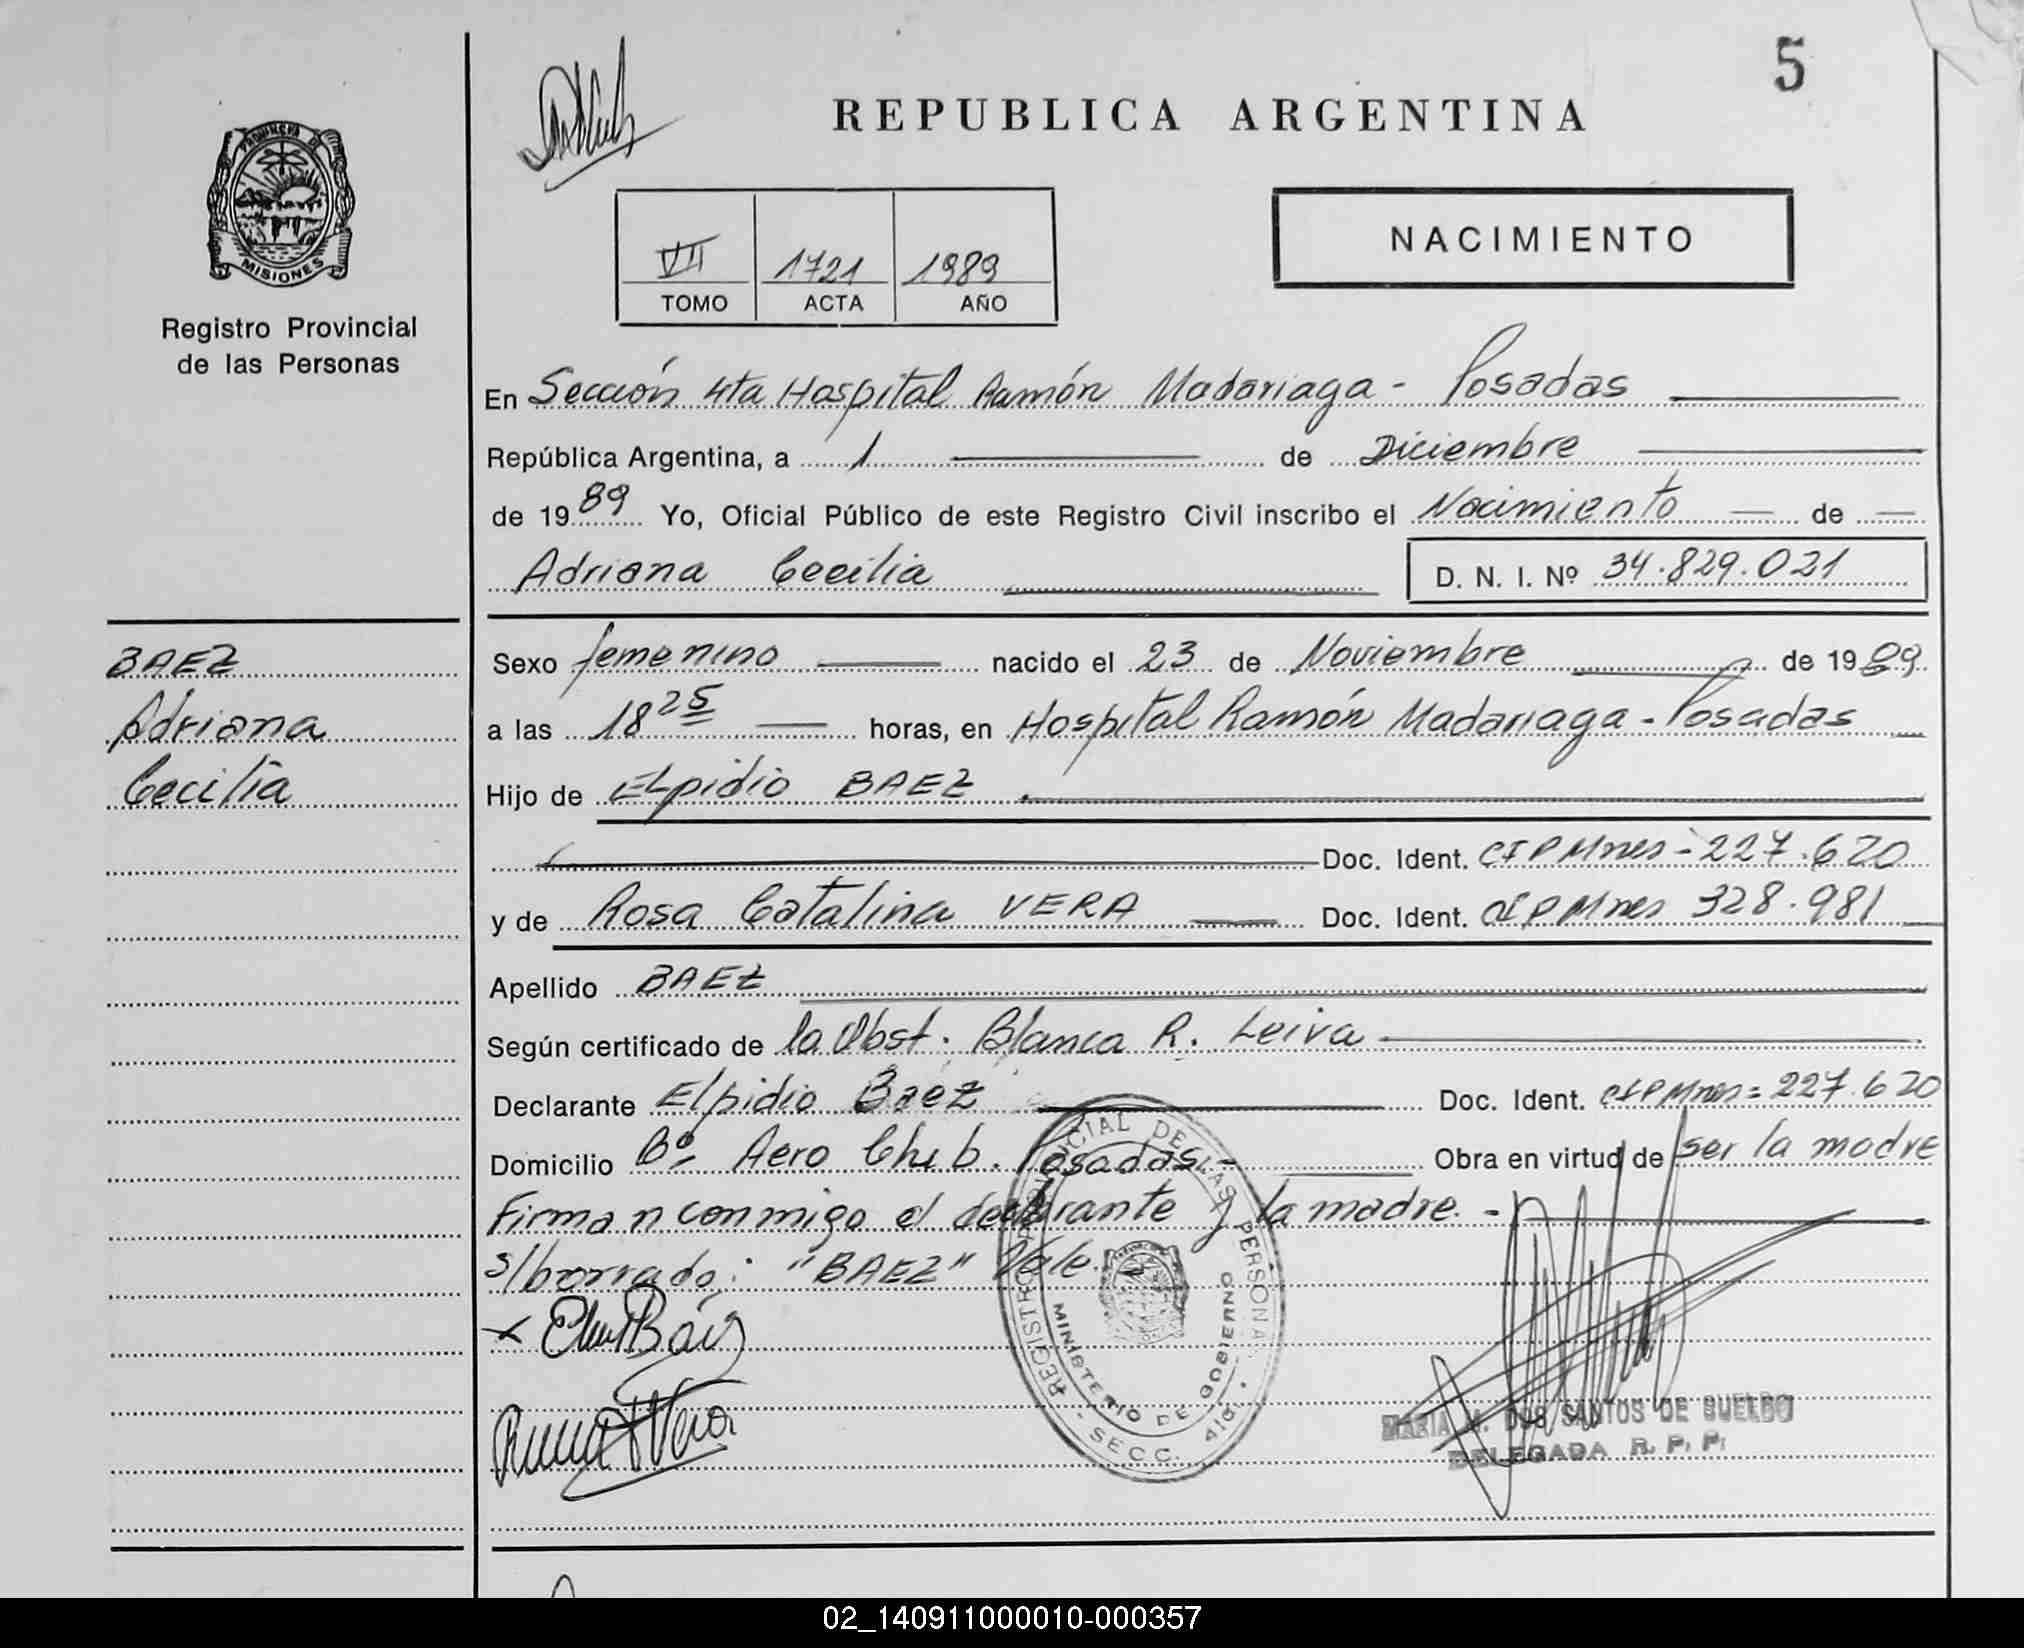 5
REPUBLICA ARGENTINA
PROVINCIA DE
MISIONES
Registro Provincial
de las Personas
VII 1721 1989
TOMO ACTA AÑO
NACIMIENTO
En Sección 4ta Hospital Ramón Madariaga - Posadas
República Argentina, a 1 de Diciembre
de 1989 Yo, Oficial Público de este Registro Civil inscribo el Nacimiento de
Adriana Cecilia D. N. I. Nº 34.829.021
BAEZ
Adriana
Cecilia
Sexo femenino nacido el 23 de Noviembre de 1989
a las 18 25 horas, en Hospital Ramón Madariaga - Posadas
Hijo de ELpidio BAEZ
Doc. Ident. CIPMnes - 227.620
y de Rosa Catalina VERA Doc. Ident. CIPMnes 328.981
Apellido BAEZ
Según certificado de la Obst. Blanca R. Leiva
Declarante Elpidio Baez Doc. Ident. CIPMnes = 227.620
Domicilio Bº Aero Club. Posadas.- Obra en virtud de ser la madre
Firman conmigo el declarante y la madre. -
s/borrado: "BAEZ" Vale.
REGISTRO PROVINCIAL DE LAS PERSONAS
MINISTERIO DE GOBIERNO
- SECC. 4ta.
x Báez
Vera
MARIA M. DOS SANTOS DE SUELDO
DELEGADA R. P. P.
02_140911000010-000357